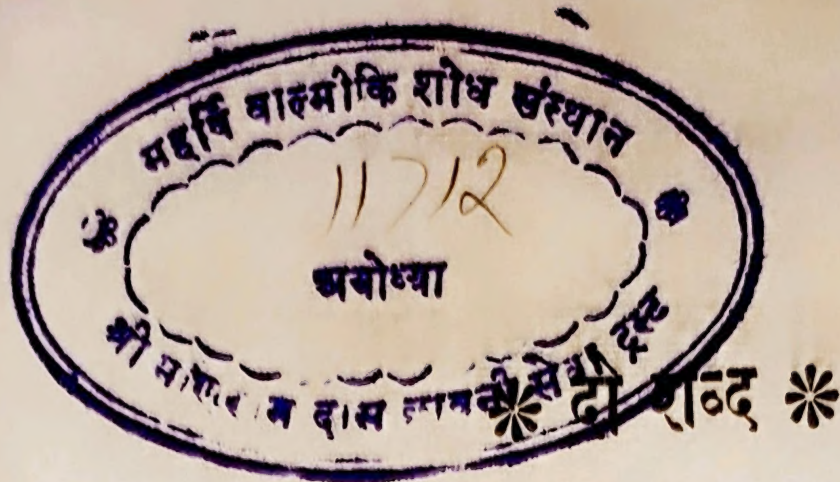 महर्षि वाल्मीकि शोध संस्थान
11712
अयोध्या
श्री दास सेवा ट्रस्ट
* दो शब्द *